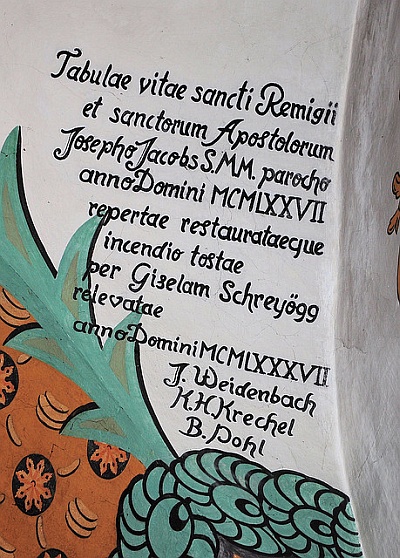 Tabulae vitae sancti Remigii
et sanctorum Apostolorum
Josepho Jacobs S.MM. parocho
anno Domini MCMLXXVII
repertae restaurataeque
incendio tostae
per Giselam Schreyögg
relevatae
anno Domini MCMLXXXVII
J. Weidenbach
K.H. Krechel
B. Dohl